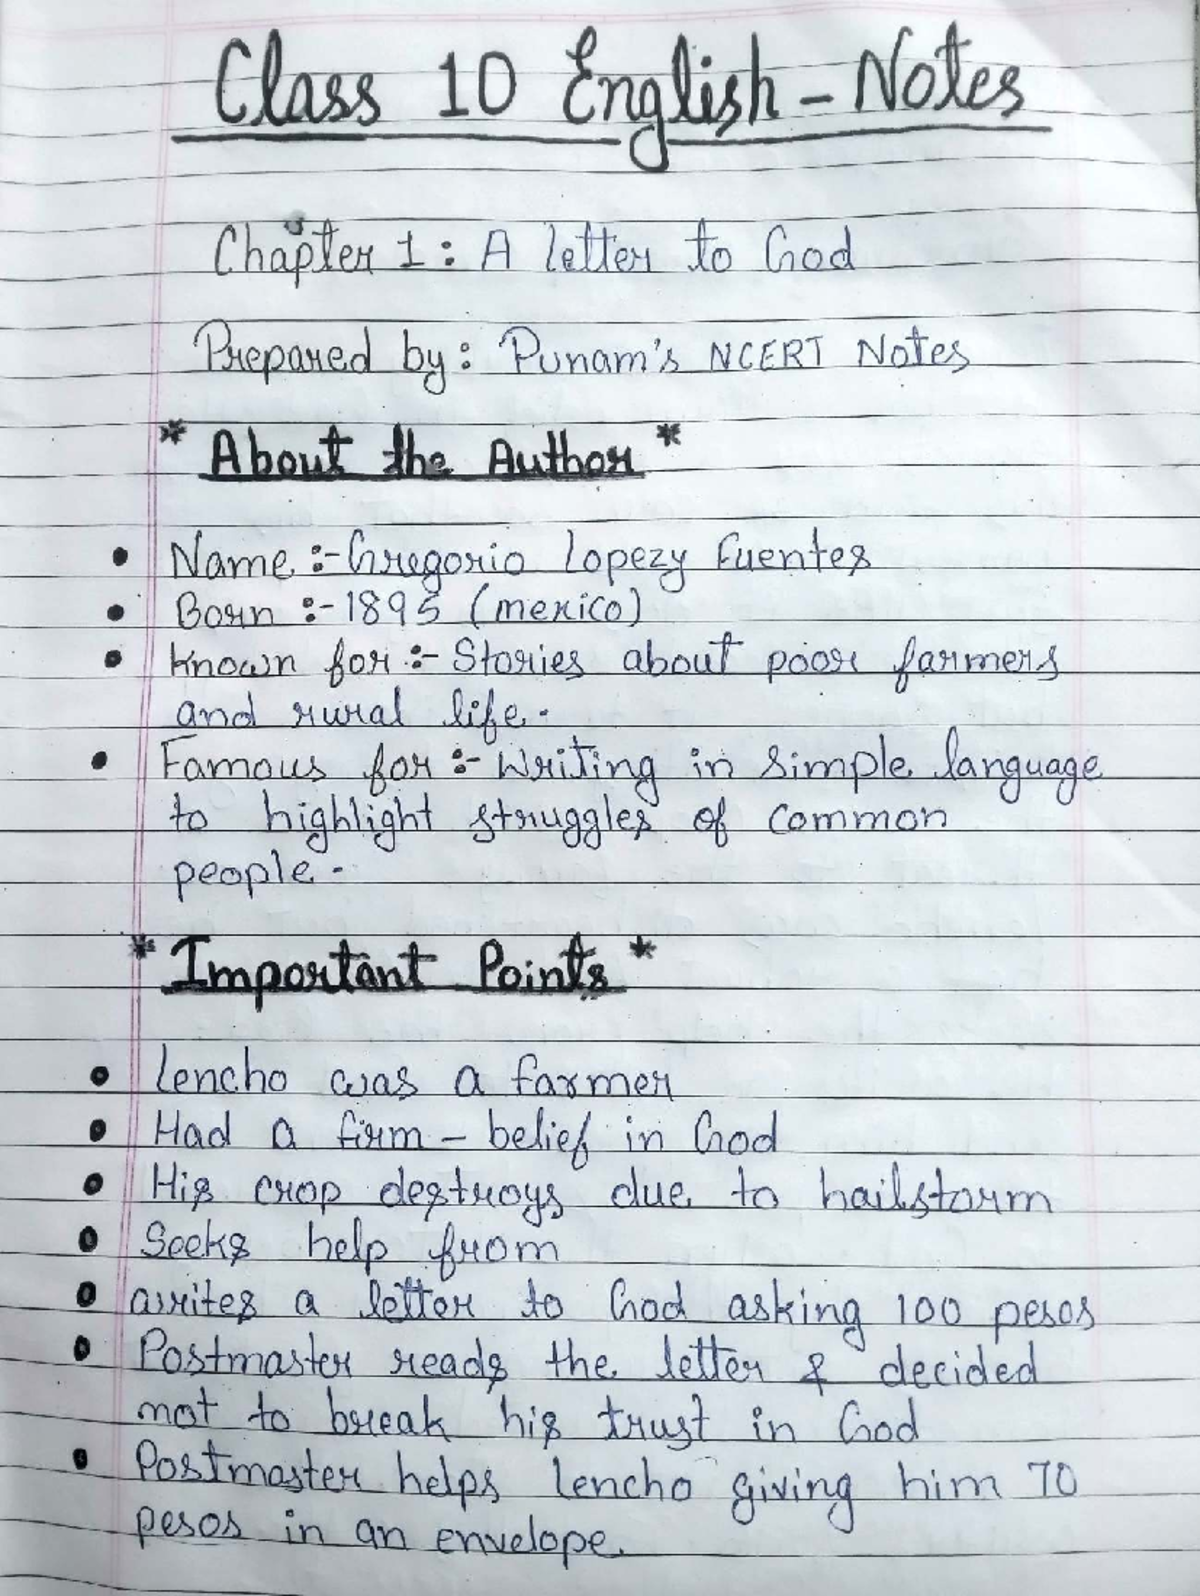 Class 10 English - Notes
Chapter 1 : A letter to God
Prepared by : Punam's NCERT Notes
* About the Author *
• Name :- Gregorio Lopezy Fuentes
• Born :- 1895 (mexico)
• Known for :- Stories about poor farmers
and rural life.
• Famous for :- Writing in simple language
to highlight struggles of common
people.
* Important Points *
• Lencho was a farmer
• Had a firm - belief in God
• His crop destroys due to hailstorm
• Seeks help from
• writes a letter to God asking 100 pesos
• Postmaster reads the letter & decided
not to break his trust in God
• Postmaster helps lencho giving him 70
pesos in an envelope.